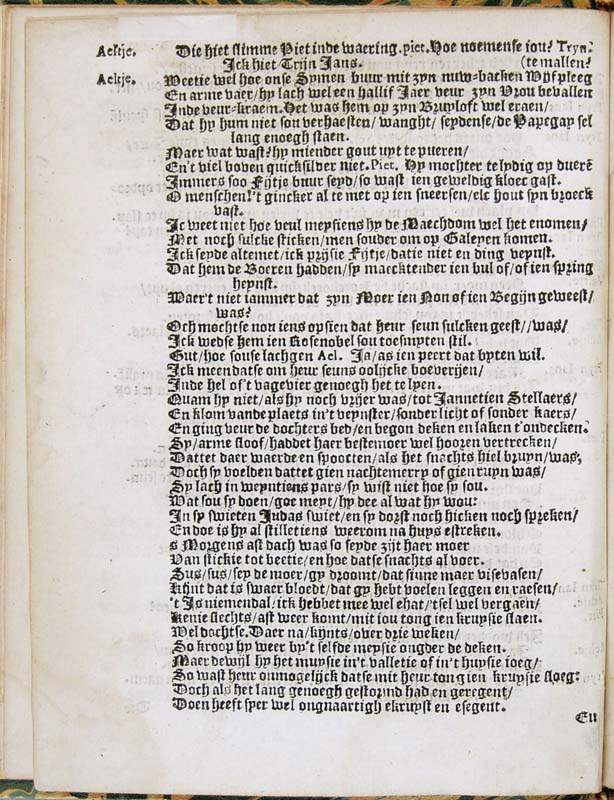 Aeltje. Die hiet slimme Piet inde waering. Piet. Hoe noemense jou? Tryn.
Ick hiet Trijn Jans. (te mallen?
Aeltje. Weetje wel hoe onse Symen buur mit zyn nuw-backen Wijf pleeg
En arme vaer/ hy lach wel een hallif Jaer veur zyn Vrou bevallen
Inde veur-kraem. Het was hem op zyn Bruyloft wel eraen/
Dat hy hum niet sou verhaesten/ wanght/ seydense/ de Papegay sel
lang enoegh staen.
Maer wat wast? hy miender gout uyt te pueren/
En't viel boven quicksilder niet. Piet. Hy mochter te lydig op duerē
Immers soo Fijtje buur seyd/ so wast ien geweldig kloec gast.
O menschen! 't gincker al te met op ien sneersen/ elc hout syn broeck
vast.
Ic weet niet hoe veul meysiens hy de Maechdom wel het enomen/
Met noch sulcke sticken/ men souder om op Galeyen komen.
Ick seyde altemet/ ick prijsie Fijtje/ datje niet en ding veynst.
Dat hem de Boeren hadden/ sy maecktender ien bul of/ of ien spring
heynst.
Waer't niet jammer dat zyn Moer ien Non of ien Begijn geweest/
was?
Och mochtse non iens opsien dat heur seun sulcken geest//was/
Ick wedse hem ien Rosenobel sou toesnyten stil.
Gut/ hoe souse lachgen Ael. Ja/ as ien peert dat byten wil.
Ick meen datse om heur seuns oolijcke boeverijen/
Inde hel of't vagevier genoegh het te lyen.
Quam hy niet/ als hy noch vrijer was/ tot Jannetien Stellaers/
En klom vande plaets in't veynster/ sonder licht of sonder kaers/
En ging veur de dochters bed/ en begon deken en laken t'ondecken.
Sy/ arme sloof/ haddet haer bestemoer wel hooren vertrecken/
Dattet daer waerde en spoocten/ als het snachts hiel bruyn/was,
Doch sy voelden dattet gien nachtemerry of gien ruyn was/
Sy lach in weyntiens pars/ sy wist niet hoe sy sou.
Wat sou sy doen/ goe meyt/ hy dee al wat hy wou:
In sy swieten Judas swiet/ en sy dorst noch hicken noch spreken/
En doe is hy al stilletiens weerom na huys estreken.
s Morgens ast dach was so seyde zijt haer moer
Van stickje tot beetje/ en hoe datse snachts al voer.
Sus/ sus/ sey de moer/ gy droomt/ dat sinne maer visevasen/
Kijnt dat is swaer bloedt/ dat gy hebt voelen leggen en raesen/
't Is niemendal/ ick hebbet mee wel ehat/ 'tsel wel vergaen/
Kenje slechts/ ast weer komt/ mit jou tong ien kruysje slaen.
Wel dochtse. Daer na/ kijnts/ over drie weken/
So kroop hy weer by't selfde meysje ongder de deken.
Maer dewijl hy het muysje in't valletje of in't huysje joeg/
So wast heur onmogelijck datse mit heur tong ien kruysje sloeg:
Doch als het lang genoegh gestormd had en geregent/
Doen heeft sper wel ongnaartigh ekruyst en esegent.
En